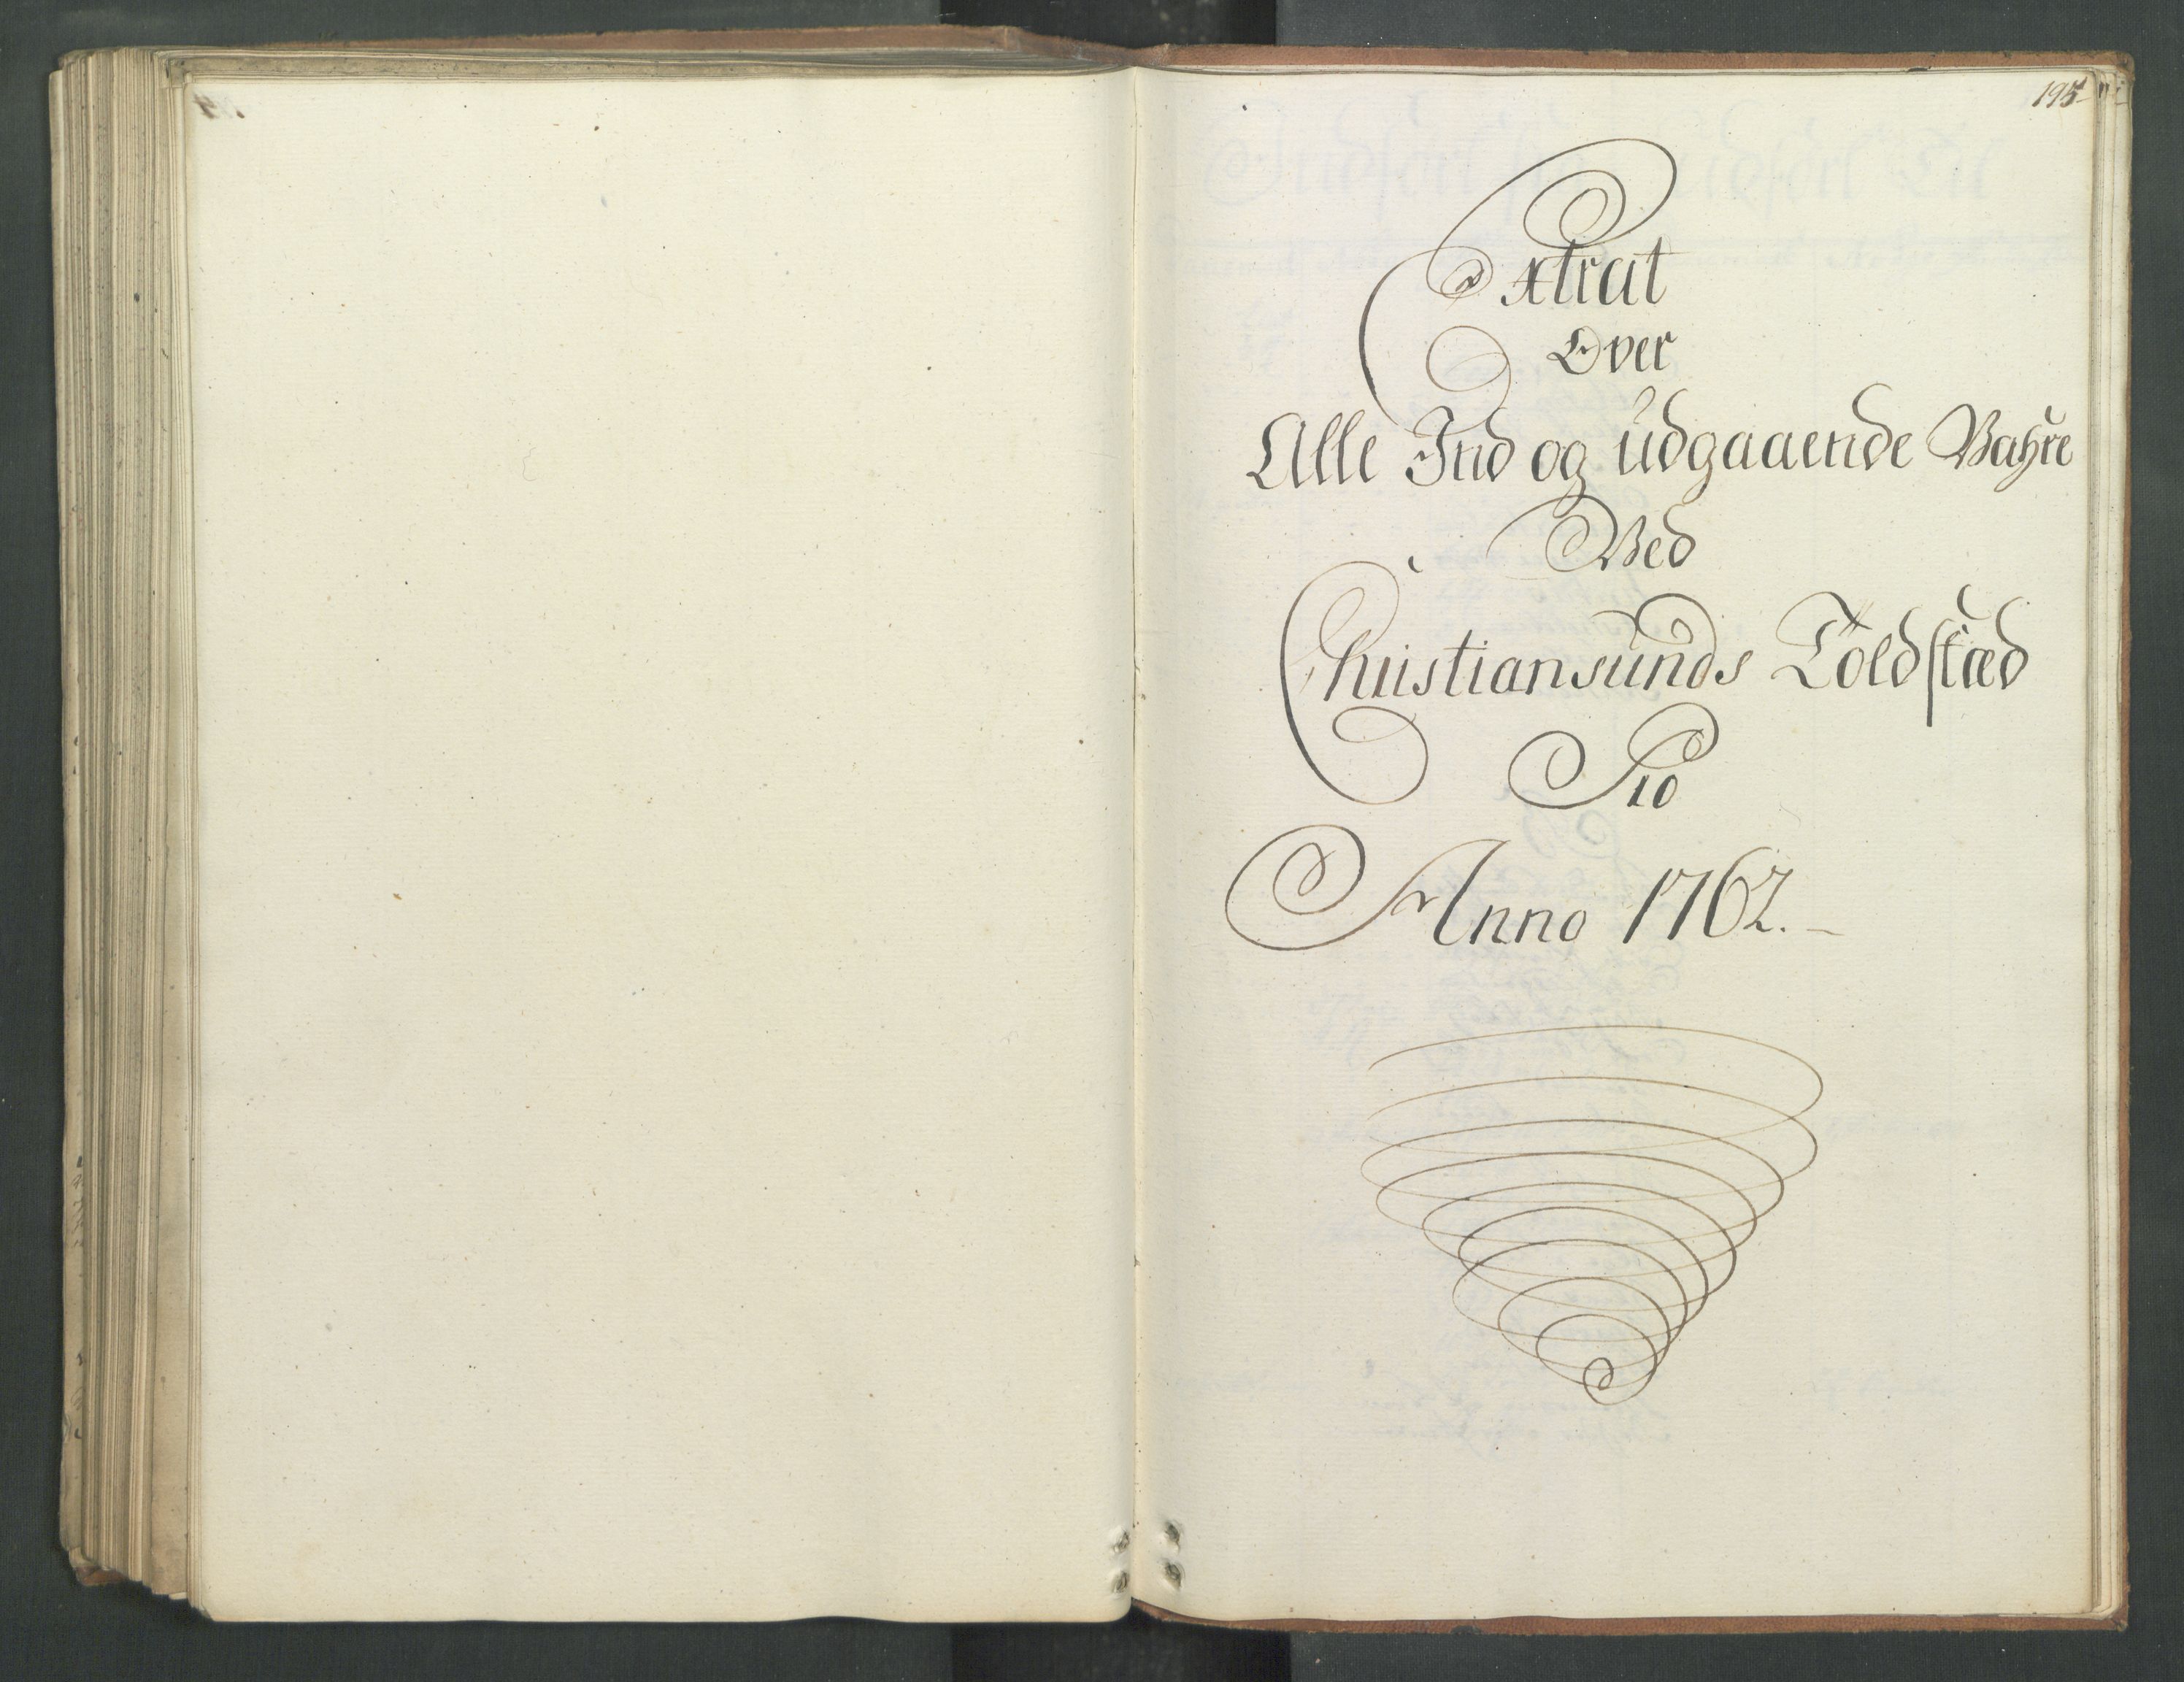 195
Extrat
Over
Alle Ind og udgaaende Vahre
Ved
Christiansunds Toldstæd
Pro
Anno 1762.